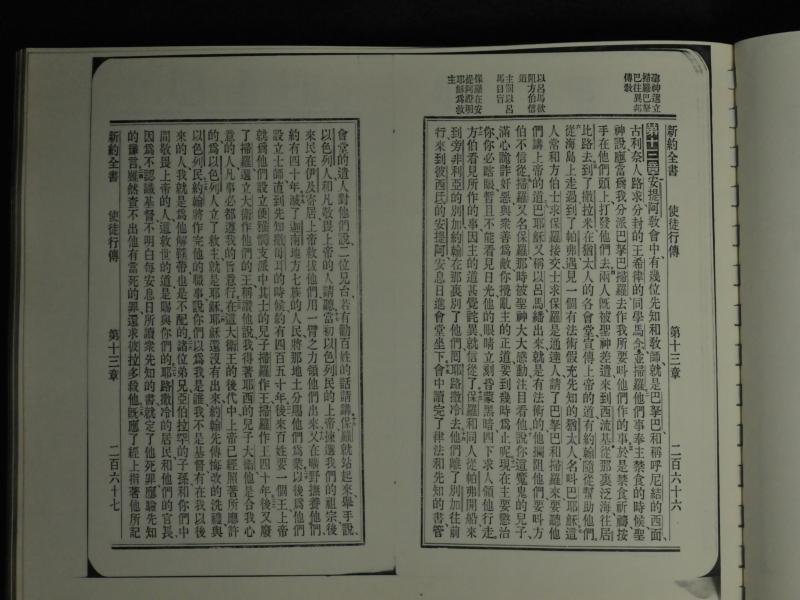 新約全書 使徒行傳 第十三章 二百六十六
聖神選立
掃羅巴拏
巴往異邦
傳教
以呂馬敵
阻方伯信
道
主罰以呂
馬目盲
保羅在安
提阿證明
耶穌爲救
主
第十三章安提阿敎會中有幾位先知和敎師就是巴拏巴和稱呼尼結的西面
古利奈人路求分封的王希律的同學馬念並掃羅他們事奉主禁食的時候聖
神說應當爲我分派巴拏巴掃羅去作我所要叫他們作的事於是禁食祈禱按
手在他們頭上打發他們去兩人既被聖神差遣來到西流基從那裏泛海往居
比路去到了撒拉米在猶太人的各會堂宣傳上帝的道有約翰隨從幫助他們
從海島上走過到了帕弗遇見一個有法術假充先知的猶太人名叫巴耶穌這
人常和方伯士求保羅接交士求保羅是通達人請了巴拏巴和掃羅來要聽他
們講上帝的道巴耶穌又稱以呂馬繙出來就是有法術的他攔阻他們要叫方
伯不信從掃羅又名保羅那時被聖神大大感動注目看他說你這魔鬼的兒子
滿心詭詐奸惡與衆善爲敵你擾亂主的正道要到幾時爲止呢現在主要懲治
你你必瞎眼暫且不能看見日光他的眼睛立刻昏蒙黑暗四下求人領他行走
方伯看見所作的事因主的道甚覺詫異就信從了保羅和同人從帕弗開船來
到旁非利亞的別加約翰在那裏別了他們回耶路撒冷去他們離了別加往前
行來到彼西氐的安提阿安息日進會堂坐下會中讀完了律法和先知的書管
會堂的遣人對他們說二位兄台若有勸百姓的話請講保羅就站起來舉手說
以色列人和凡敬畏上帝的人請聽當初以色列民的上帝揀選我們的祖宗後
來民在伊及寄居上帝救拔他們用一臂之力領他們出來又在曠野撫養他們
約有四十年滅了迦南地方七族的人民將那地土分賜他們爲業以後爲他們
設立士師直到先知撒母耳的時候約有四百五十年後來百姓要一個王上帝
就爲他們設立便雅憫支派中其士的兒子掃羅作王四十年後又廢
了掃羅選立大衛作他們的王稱讚他說我得著耶西的兒子大衛他是合我心
意的人凡事必都遵我的旨意行在這大衛王的後代中上帝已經照著所應許
的爲以色列人立了救主就是耶穌耶穌還沒有出來約翰先傳悔改的洗禮與
以色列民約翰將作完他的職事說你們以爲我是誰我不是基督有在我以後
來的人我就是爲他解鞋帶也是不配的諸位弟兄亞伯拉罕的子孫和你們中
間敬畏上帝的人這救世的道是賜與你們的耶路撒冷的居民和他們的官長
因爲不認識基督不明白每安息日所讀衆先知的書就定了他死罪應驗先知
的豫言雖然查不出他有當死的罪還求彼拉多殺他既應了經上指著他所記
新約全書 使徒行傳 第十三章 二百六十七